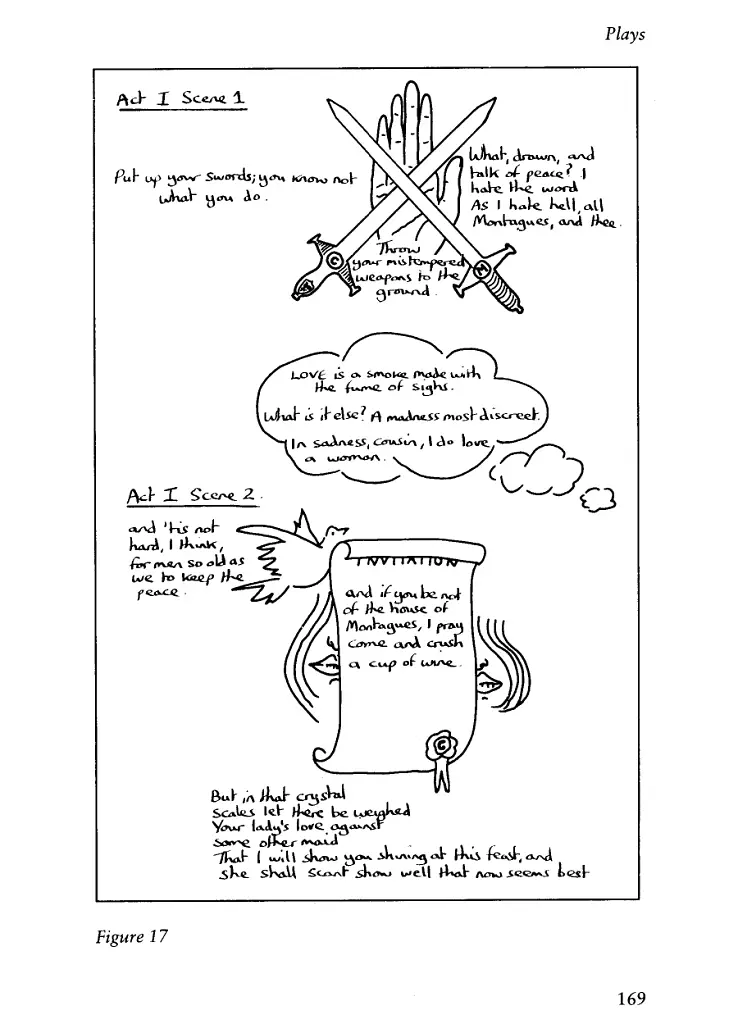 Plays
Act I Scene 1
Put up your swords; you know not
what you do.
What, drawn, and
talk of peace? I
hate the word
As I hate hell, all
Montagues, and thee.
Throw
your mistempered
weapons to the
ground.
C
M
M
LOVE is a smoke made with
the fume of sighs.
What is it else? A madness most discreet.
In sadness, cousin, I do love
a woman.
Act I Scene 2.
and 'tis not
hard, I think,
for men so old as
we to keep the
peace.
INVITATION
and if you be not
of the house of
Montagues, I pray
come and crush
a cup of wine.
C
But in that crystal
scales let there be weighed
Your lady's love against
some other maid
That I will show you shining at this feast, and
she shall scant show well that now seems best
Figure 17
169